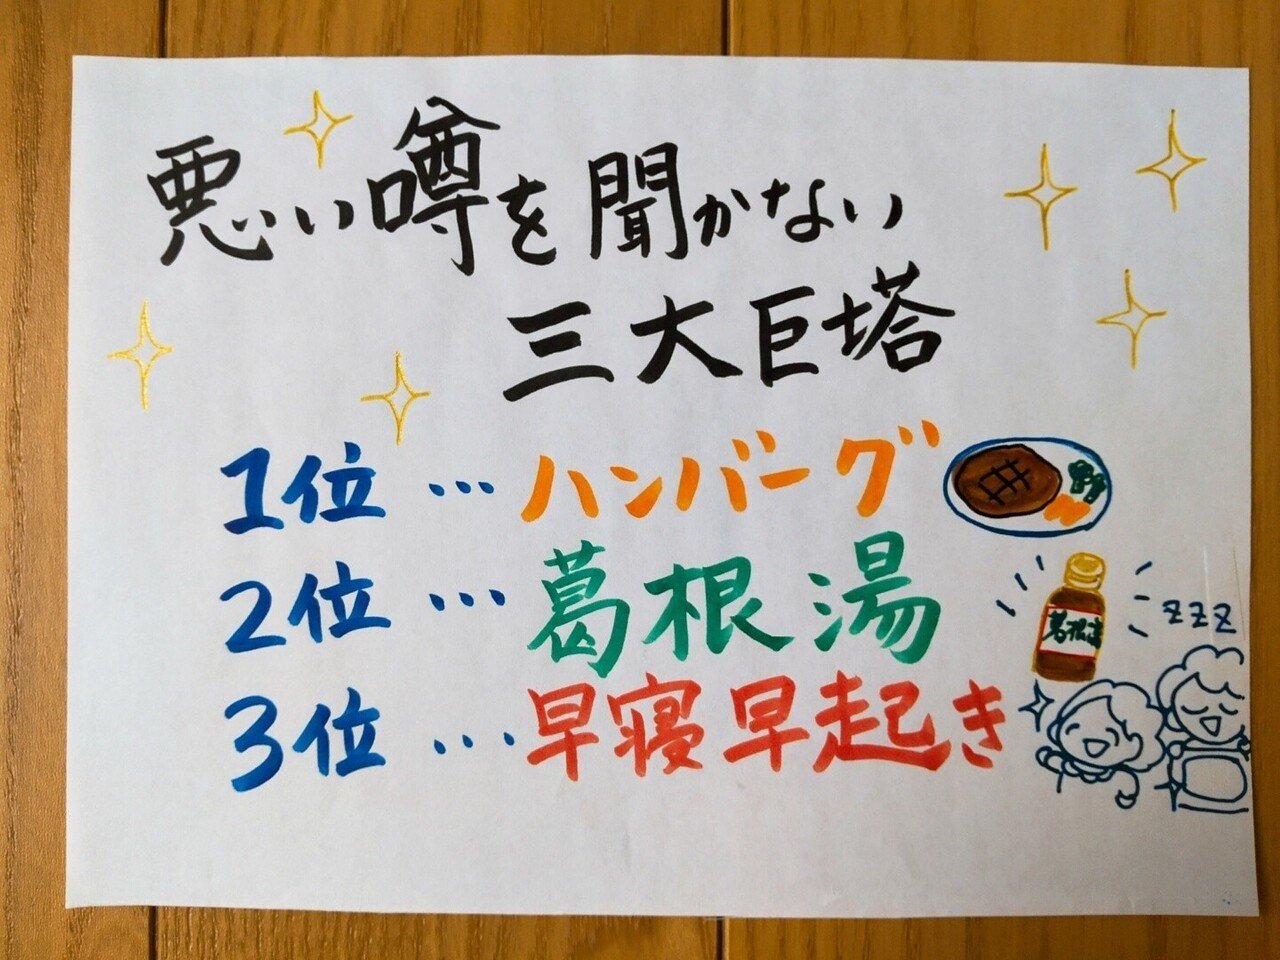 悪い噂を聞かない
三大巨塔
1位…ハンバーグ
2位…葛根湯
葛根湯
zzz
3位…早寝早起き